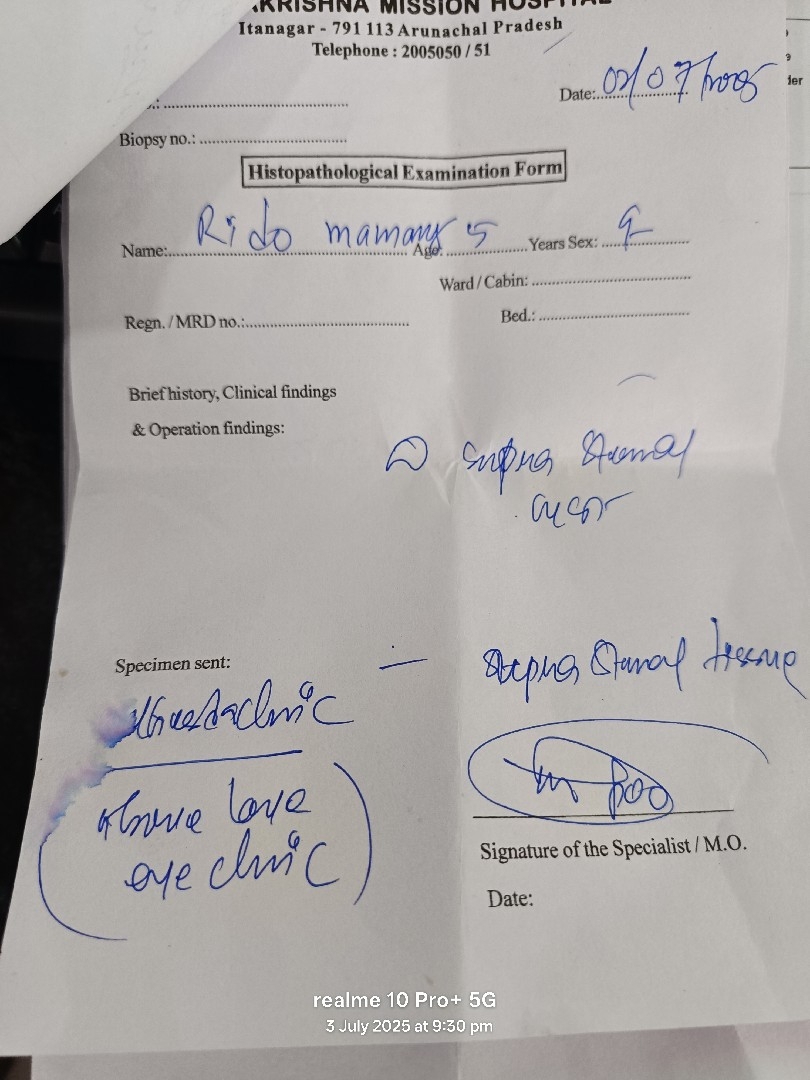 KRISHNA MISSION HOSPITAL
Itanagar - 791 113 Arunachal Pradesh
Telephone : 2005050 / 51
Date: 02/07/2025
Biopsy no.:
Histopathological Examination Form
Name: Rido mamang Age: 5 Years Sex: ♀
Ward / Cabin:
Regn. / MRD no.:
Bed.:
Brief history, Clinical findings
& Operation findings:
supra sternal
Specimen sent: — supra sternal tissue
clinic
(Above
eye clinic)
Signature of the Specialist / M.O.
Date:
realme 10 Pro+ 5G
3 July 2025 at 9:30 pm